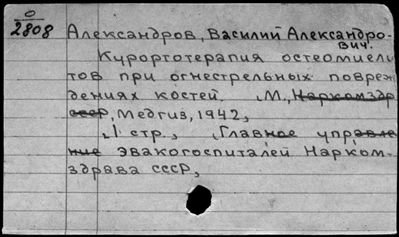 0
2808
Александров, Василий Александро-
вич.
Курортотерапия остеомиели
тов при огнестрельных повреж
дениях костей. М., Наркомздр
ссср, Медгиз, 1942,
1 стр., (Главное управле
ние эвакогоспиталей Нарком-
здрава ссср,